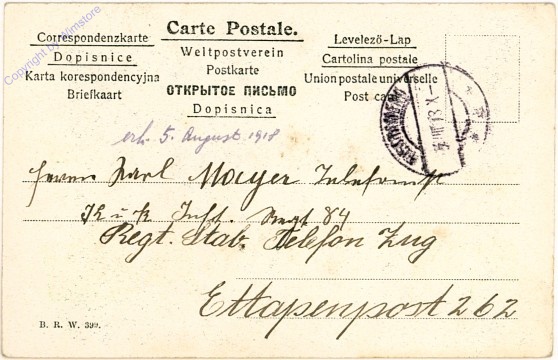 Copyright by filmstore
Carte Postale.
Correspondenzkarte
Dopisnice
Karta korespondencyjna
Briefkaart
Weltpostverein
Postkarte
ОТКРЫТОЕ ПИСЬМО
Dopisnica
Levelező-Lap
Cartolina postale
Union postale universelle
Post card
erh. 5. August 1918
Herrn Karl Mayer Telefonist
K. u. K. Inft. Regt 84
Regt. Stab. Telefon Zug
Ettapenpost 262
B. R. W. 399.